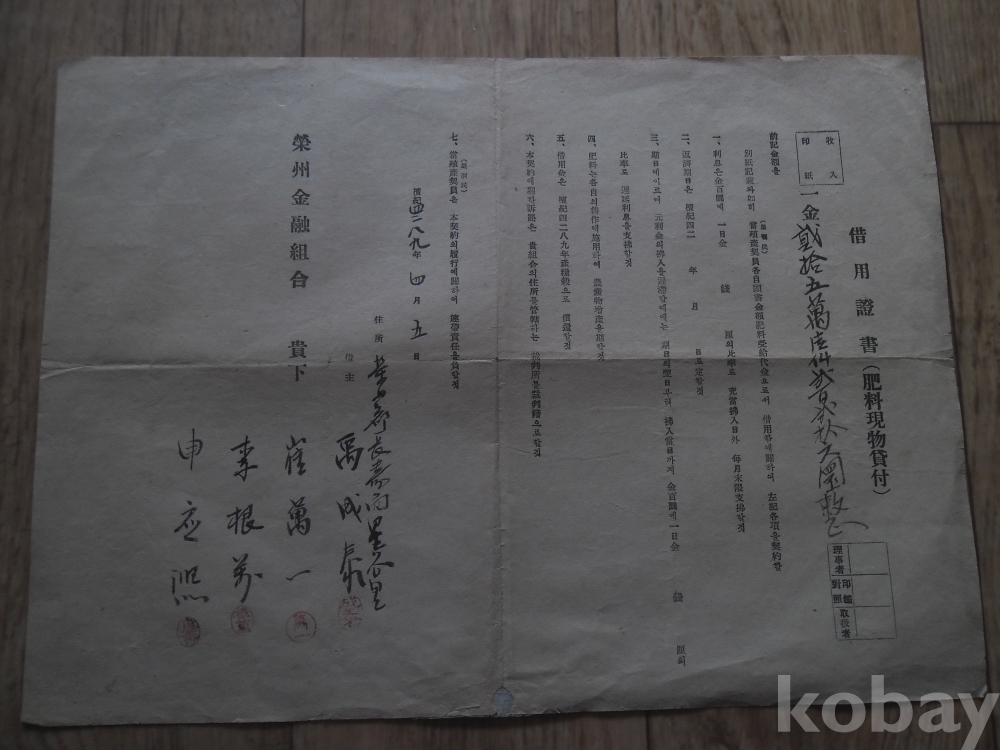 收入
印紙
借用證書(肥料現物貸付)
一金貳拾五萬
前記金額을
別紙記載와如히 當殖產契員各自願書金額肥料受給代金으로서 借用함에關하여 左記各項을契約함
一、利息은金百圜에 一日金 錢 厘의比率로 充當拂入日外 每月末限支拂할것
二、返濟期日은 檀紀四二 年 月 日로定할것
三、期日에이르러 元利金의拂入을遲滯할때에는 期日의翌日부터 拂入當日까지 金百圜에一日金 錢 厘의
比率로 遲延利息을支拂할것
四、肥料는各自의耕作에施用하여 農產物增產을期할것
五、借用金은 檀紀四二八九年產糧穀으로 償還할것
六、本契約에關한訴訟은 貴組合의住所를管轄하는 裁判所를裁判籍으로할것
七、當殖產契員은 本契約의履行에關하여 連帶責任을負할것
檀紀四二八九年 四月 五日
住所
借主 禹成泰
崔萬一
李根芳
申应熙
榮州金融組合 貴下
理事者
印鑑對照
取扱者
kobay